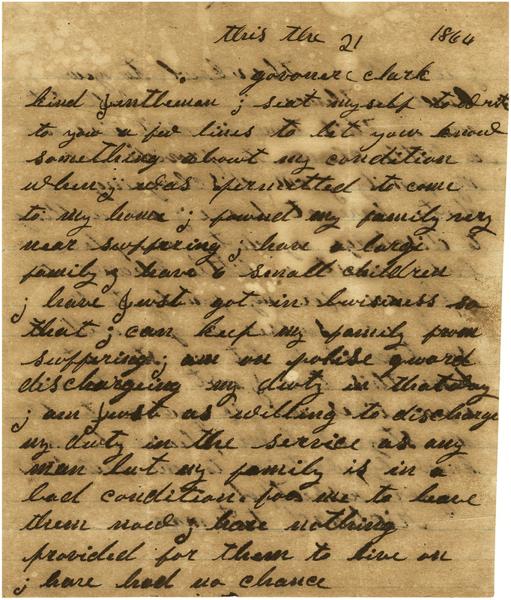 this the 21 1864
govoner Clark
kind gentleman j seat my self to write
to you a few lines to let you know
something about my condition
when j was permitted to come
to my home j found my family very
near suffering j have a large
family j have 6 small children
j have Just got in buisiness so
that j can keep my family from
suffering j am on polise guard
dischargeing my duty in that way
j am Just as willing to discharge
my duty in the service as any
man but my family is in a
bad condition for me to leave
them now j have nothing
provided for them to live on
j have had no chance